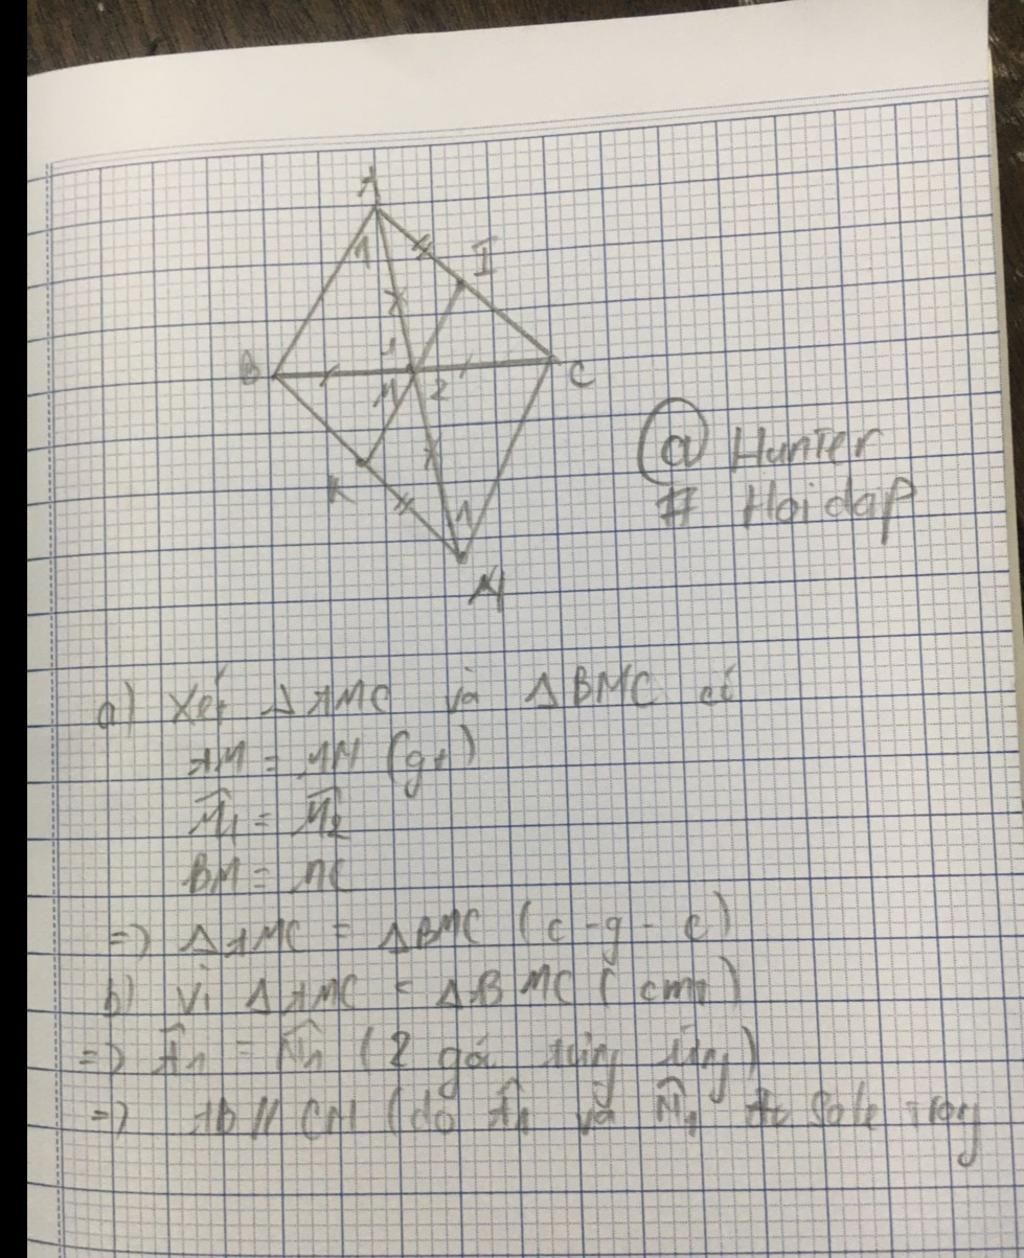 A
1
I
B
1
M
2
C
K
1
N
@ Hunter
# Hoidap
a) Xét Δ AMC và Δ BMC có
AM = MN (gt)
M̂₁ = M̂₂
BM = MC
=) Δ AMC = Δ BMC (c - g - c)
b) Vì Δ AMC = Δ BMC (cmt)
=) Â₁ = N̂₁ (2 gó tương ứng)
=) AB // CN (do Â₁ và N̂₁ sole trog